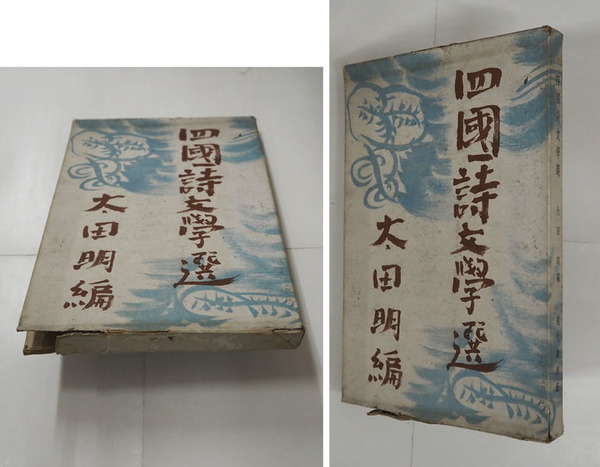 四國詩文學選
太田明編
四國詩文學選
太田明編